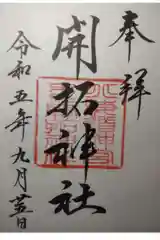 奉拝
開拓神社
令和五年九月十五日